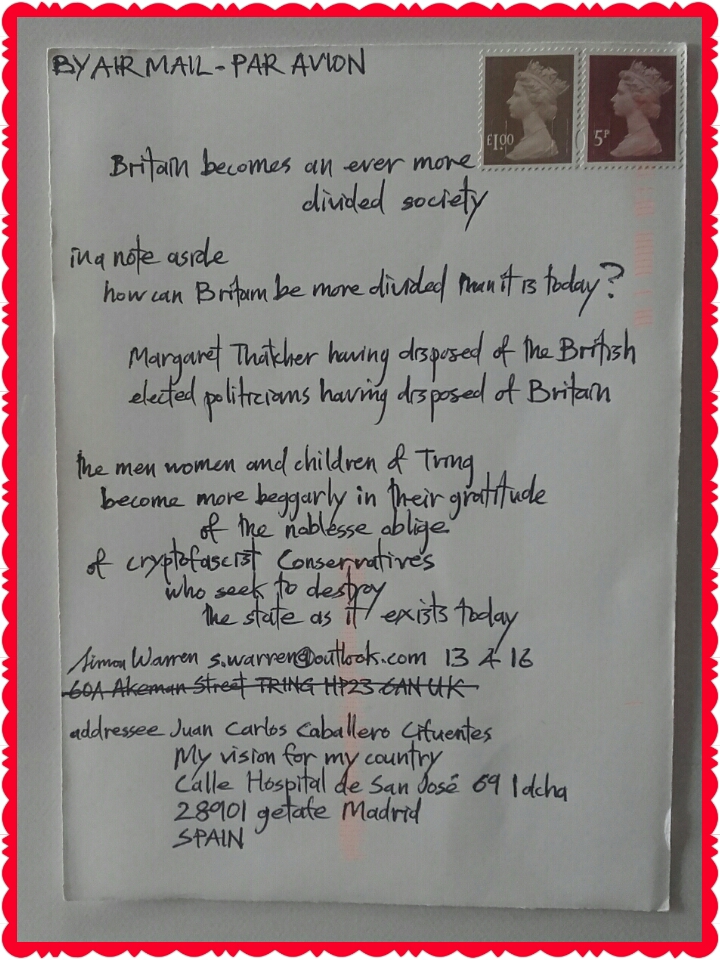 BY AIR MAIL - PAR AVION
£1.00
5P
Britain becomes an ever more
divided society
in a note aside
how can Britain be more divided than it is today?
Margaret Thatcher having disposed of the British
elected politicians having disposed of Britain
the men women and children of Tring
become more beggarly in their gratitude
of the noblesse oblige
of cryptofascist Conservatives
who seek to destroy
the state as it exists today
Simon Warren s.warren@outlook.com 13 4 16
60A Akeman Street TRING HP23 6AN UK
addressee Juan Carlos Caballero Cifuentes
My vision for my country
Calle Hospital de San José 69 1 dcha
28901 getafe Madrid
SPAIN